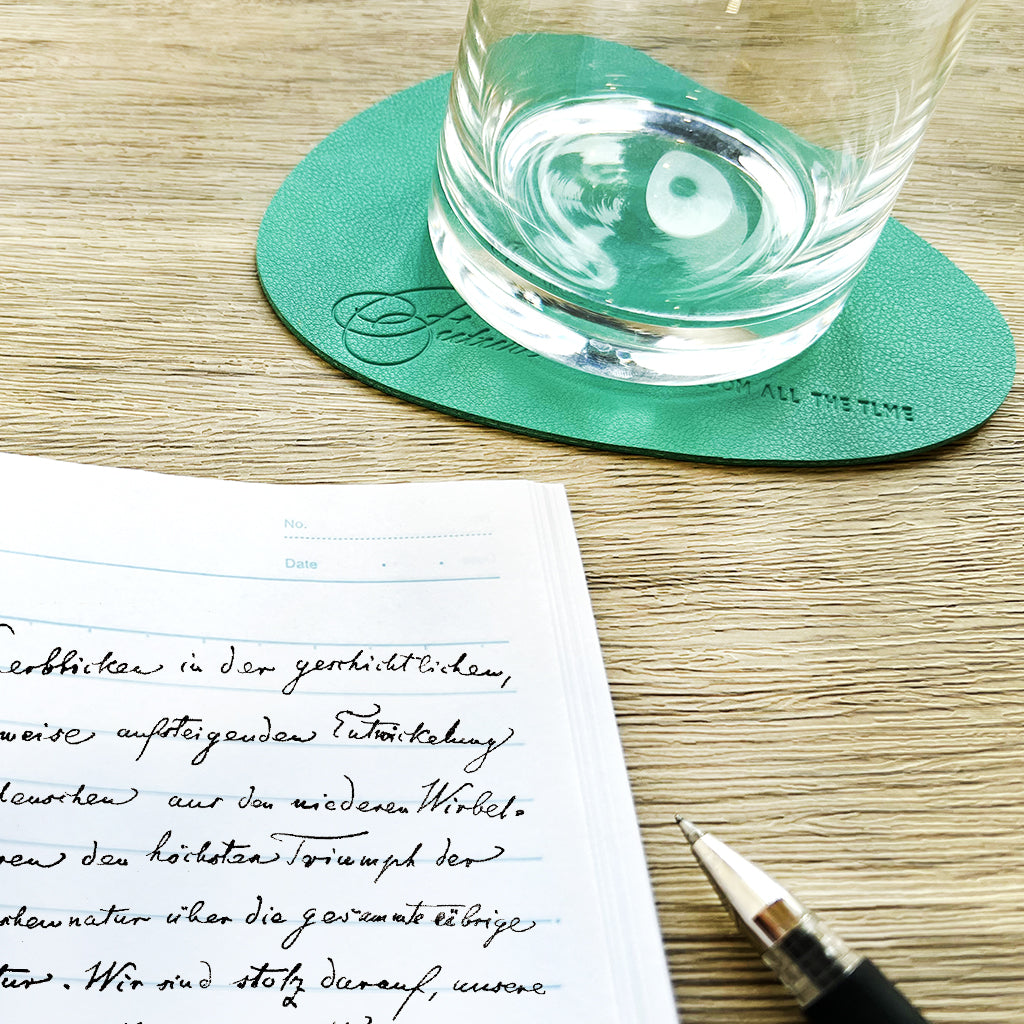 OM ALL THE TIME
No.
Date
erblicken in der geschichtlichen,
weise aufsteigenden Entwickelung
enschen aus den niederen Wirbel-
ren den höchsten Triumph der
hennatur über die gesammte übrige
tur. Wir sind stolz darauf, unsere